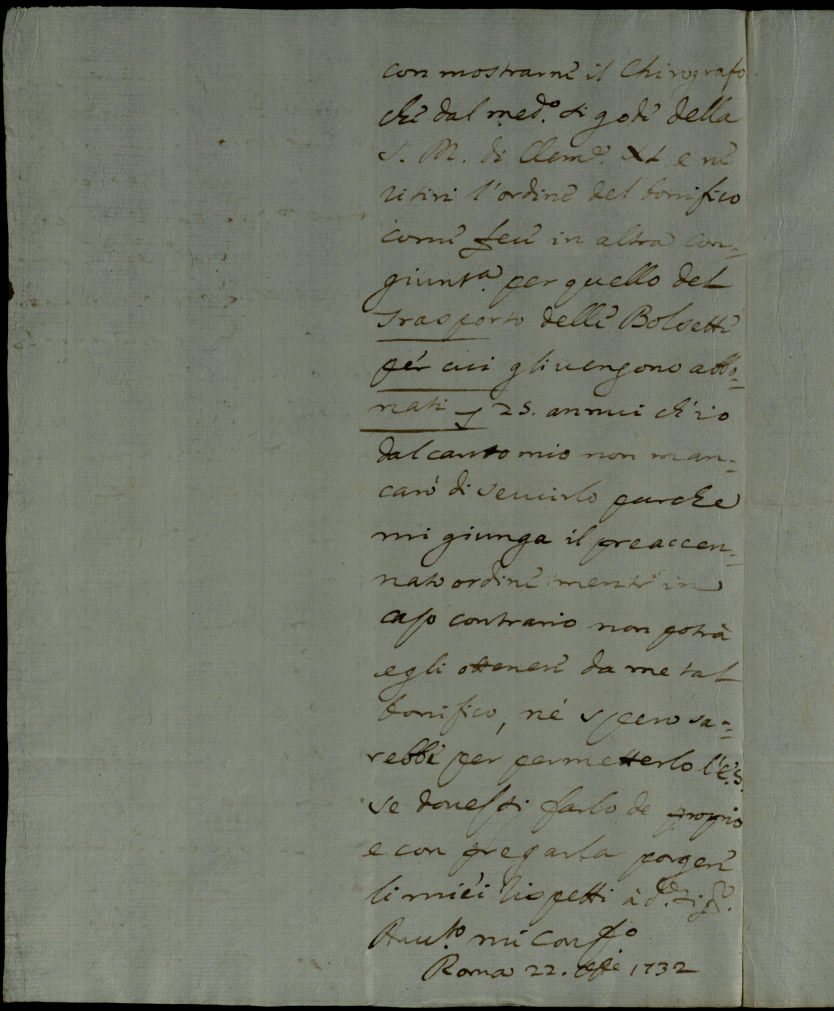 con mostrarne il Chirografo
che dal med.o si gode della
S. M. di Clem.e XI. e ne
ritiri l'ordine del bonifico
come fece in altra con=
giunt.a per quello del
trasporto delle Bolsette
per cui gli vengono abbo=
nati 25. annui ch'io
dal canto mio non man=
carò di servirlo purche
mi giunga il preaccen=
nato ordine mentre in
caso contrario non potrà
egli ottenere da me tal
bonifico, né spero sa=
rebbe per permetterlo l'E.S.
se dovessi farlo de proprio
e con pregarla porgere
li miei rispetti à d.o Sig.
mi conf.o
Roma 22. 1732